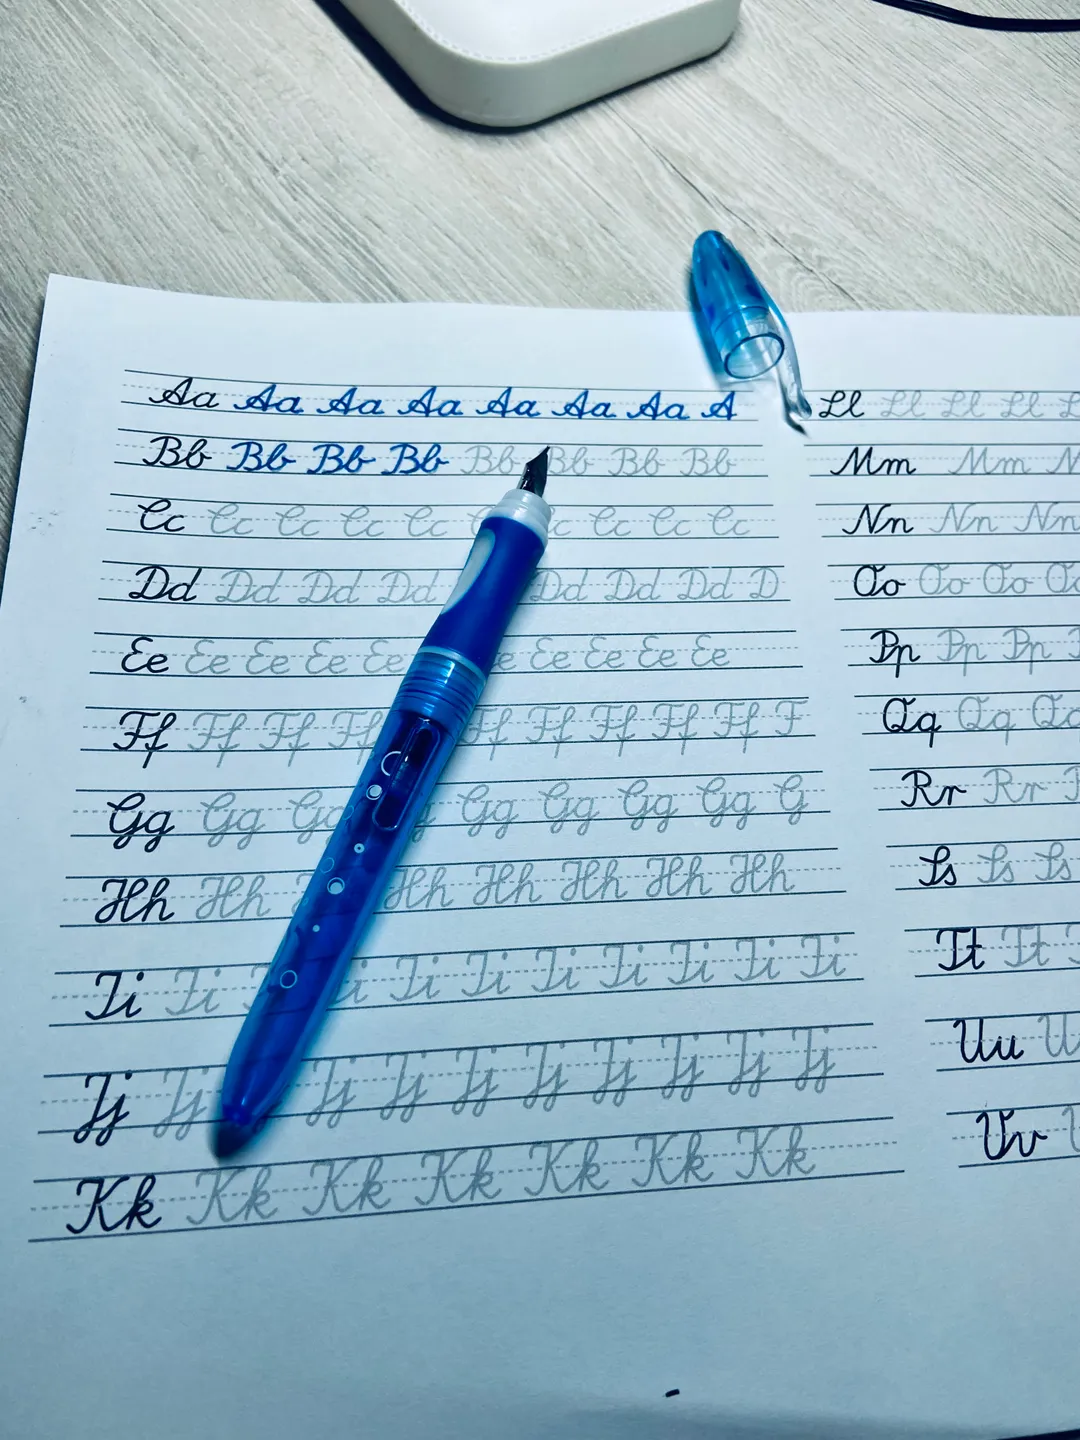 Aa Aa Aa Aa Aa Aa Aa A
Bb Bb Bb Bb Bb Bb Bb Bb
Cc Cc Cc Cc Cc c Cc Cc Cc
Dd Dd Dd Dd Dd Dd Dd D
Ee Ee Ee Ee Ee e Ee Ee Ee Ee
Ff Ff Ff Ff Ff Ff Ff Ff Ff F
Gg Gg Gg Gg Gg Gg Gg G
Hh Hh Hh Hh Hh Hh Hh
Ii Ii i Ii Ii Ii Ii Ii Ii Ii
Jj Jj Jj Jj Jj Jj Jj Jj Jj Jj
Kk Kk Kk Kk Kk Kk Kk
Ll Ll Ll Ll L
Mm Mm M
Nn Nn Nn
Oo Oo Oo O
Pp Pp Pp
Qq Qq Q
Rr Rr
Ss Ss Ss
Tt Tt
Uu U
Vv